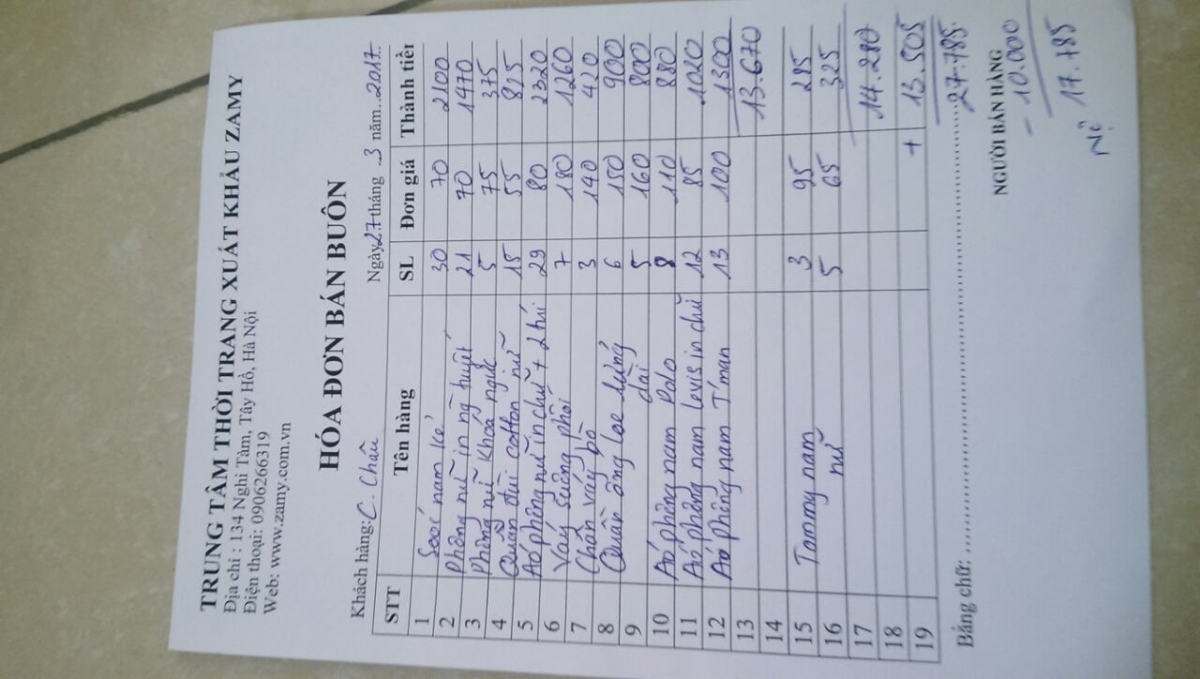 TRUNG TÂM THỜI TRANG XUẤT KHẨU ZAMY
Địa chỉ : 134 Nghi Tàm, Tây Hồ, Hà Nội
Điện thoại: 0906266319
Web: www.zamy.com.vn
HÓA ĐƠN BÁN BUÔN
Khách hàng: C. Châu Ngày 27 tháng 3 năm 2017
STT Tên hàng SL Đơn giá Thành tiền
1 Sooc nam kẻ 30 70 2100
2 Phông nữ in ng tuyết 21 70 1470
3 Phông nữ khoá ngực 5 75 375
4 Quần đùi cotton nữ 15 55 825
5 Áo phông nữ in chữ + 2 túi 29 80 2320
6 Váy suông phối 7 180 1260
7 Chân váy bò 3 140 420
8 Quần ống loe lửng 6 150 900
9 dài 5 160 800
10 Áo phông nam Polo 8 110 880
11 Áo phông nam Levis in chữ 12 85 1020
12 Áo phông nam T'man 13 100 1300
13 13.670
14
15 Tommy nam 3 95 285
16 nữ 5 65 325
17 14.280
18 + 13.505
19 27.785
Bằng chữ:
NGƯỜI BÁN HÀNG
- 10.000
Nợ 17.785